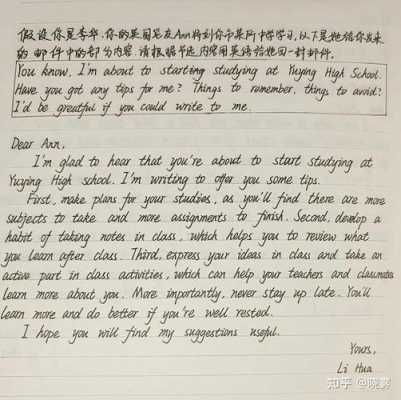 假设你是李华,你的英国笔友Ann将到你市某所中学学习,以下是她给你发来
的邮件中的部分内容.请根据所述内容用英语给她回一封邮件.
You know, I'm about to starting studying at Yuying High School.
Have you got any tips for me? Things to remember, things to avoid?
I'd be greatful if you could write to me.
Dear Ann,
I'm glad to hear that you're about to start studying at
Yuying High school. I'm writing to offer you some tips.
First, make plans for your studies, as you'll find there are more
subjects to take and more assignments to finish. Second, develop a
habit of taking notes in class, which helps you to review what
you learn after class. Third, express your ideas in class and take an
active part in class activities, which can help your teachers and classmates
learn more about you. More importantly, never stay up late. You'll
learn more and do better if you're well rested.
I hope you will find my suggestions useful.
Yours,
Li Hua
知乎